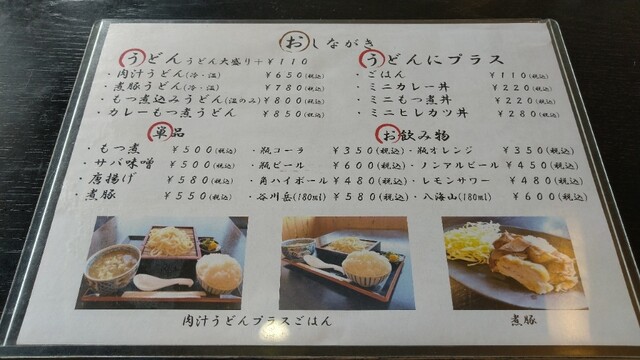 おしながき
うどん うどん大盛り+¥110
・肉汁うどん(冷・温) ¥650(税込)
・煮豚うどん(冷・温) ¥780(税込)
・もつ煮込みうどん(温のみ) ¥800(税込)
・カレーもつ煮うどん ¥850(税込)
うどんにプラス
・ごはん ¥110(税込)
・ミニカレー丼 ¥220(税込)
・ミニもつ煮丼 ¥220(税込)
・ミニヒレカツ丼 ¥280(税込)
単品
・もつ煮 ¥500(税込)
・サバ味噌 ¥500(税込)
・唐揚げ ¥580(税込)
・煮豚 ¥550(税込)
お飲み物
・瓶コーラ ¥350(税込)・瓶オレンジ ¥350(税込)
・瓶ビール ¥600(税込)・ノンアルビール ¥450(税込)
・角ハイボール ¥480(税込)・レモンサワー ¥480(税込)
・谷川岳(180ml) ¥580(税込)・八海山(180ml) ¥600(税込)
肉汁うどんプラスごはん
煮豚